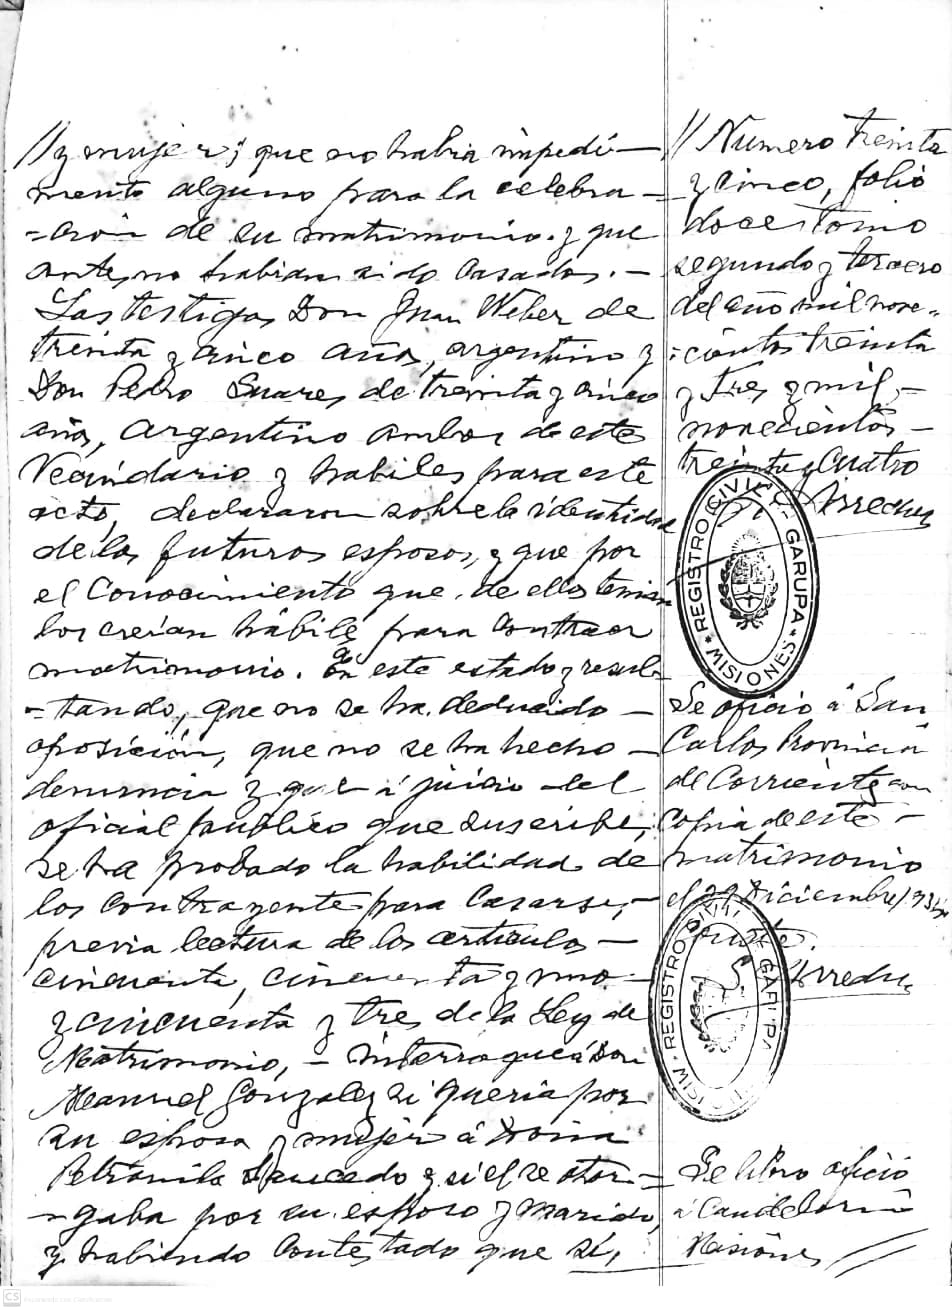 // y mujer; que no habia impedi-
mento alguno para la celebra-
-ción de su matrimonio. y que
antes no habian sido casados.-
Los testigos Don Juan Weber de
treinta y cinco años, argentino y
Don Pedro Suares de treinta y cinco
años, argentino ambos de este
Vecindario y habiles para este
acto, declararon sobre la identidad
de los futuros esposos, y que por
el Conocimiento que de ellos tenian
los creian hábile para contraer
matrimonio. En este estado y resul-
-tando, que no se ha deducido -
oposición, que no se ha hecho -
denuncia y que á juicio del
oficial publico que suscribe,
se ha probado la habilidad de
los contrayente para casarse,-
previa lectura de los articulos -
cincuenta, cincuenta y uno
y cincuenta y tres de la Ley de
Matrimonio, - interrogue á Don
Manuel Gonzalez si queria por
su esposa y mujer á Doña
Petronila Saucedo y si el se otor-
-gaba por su esposo y marido,
y habiendo contestado que sí,
// Numero treinta
y cinco, folio
doce tomo
segundo y tercero
del año mil nove-
-cientos treinta
y tres y mil,-
novecientos -
treinta y cuatro
Irredu
REGISTRO CIVIL GARUPA
* MISIONES *
Se oficio á San
Carlos Provincia
de Corrientes con
Copia de este -
matrimonio
el Diciembre/
Irredu
REGISTRO CIVIL
Se libro oficio
á Candelaria
Misiones //
CS